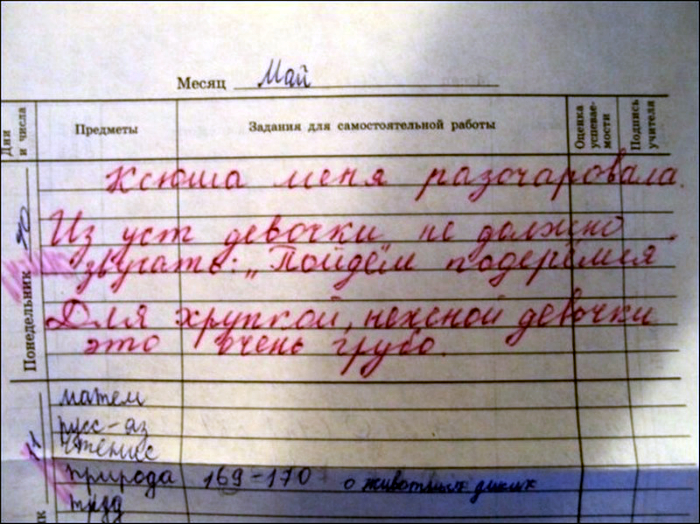 Месяц Май
Дни и числа
Предметы
Задания для самостоятельной работы
Оценка успевае-мости
Подпись учителя
Понедельник
Ксюша меня разочаровала.
Из уст девочки не должно
звучать: „Пойдём подерёмся
Для хрупкой, нежной девочки
это очень грубо.
11
матем
русс-яз
чтение
природа 169-170 о животных диких
труд